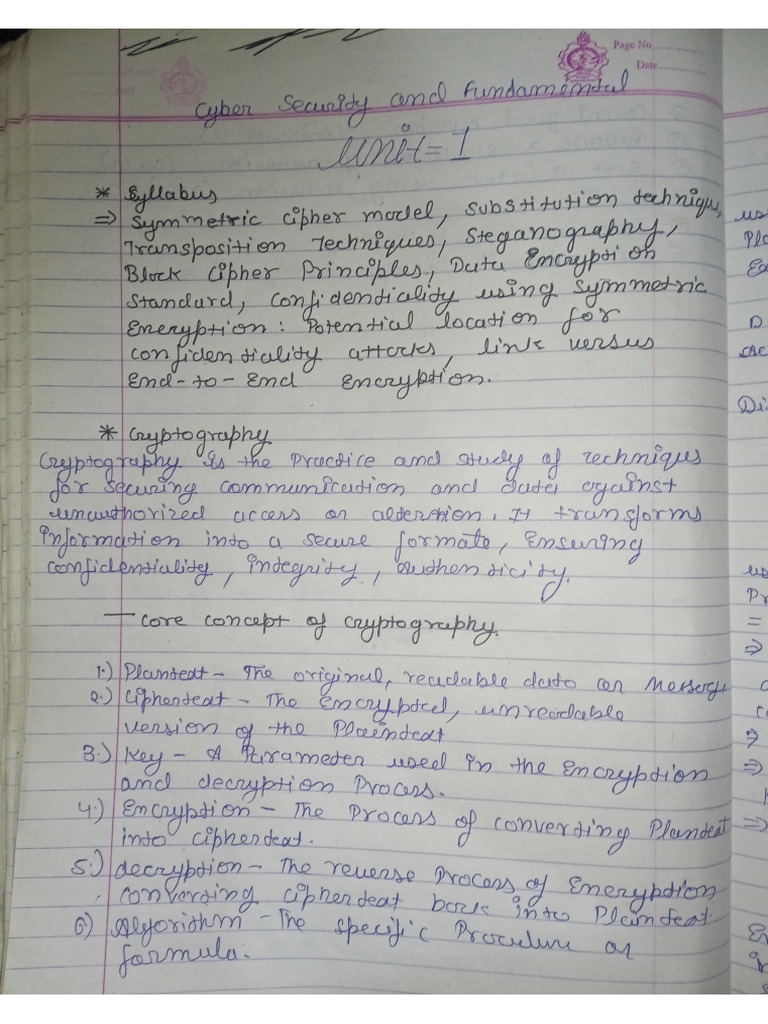 Page No.............
Date............
Cyber Security and Fundamental
Unit = 1
* Syllabus
⇒ Symmetric Cipher model, Substitution technique,
Transposition Techniques, Steganography,
Block Cipher Principles, Data Encryption
Standard, Confidentiality using Symmetric
Encryption: Potential location for
confidentiality attacks, link versus
End-to-End Encryption.
* Cryptography
Cryptography is the Practice and study of techniques
for securing communication and data against
unauthorized access or alteration. It transforms
information into a secure formate, Ensuring
confidentiality, integrity, authenticity.
— Core concept of Cryptography.
1.) Plantext - The original, readable data or Message
2.) Ciphertext - The Encrypted, unreadable
version of the Plaintext
3.) Key - A Parameter used in the Encryption
and decryption Process.
4.) Encryption - The Process of converting Plantext
into ciphertext.
5.) decryption - The reverse Process of Encryption
converting ciphertext back into Plaintext.
6) Algorithm - The specific Procedure or
formula.